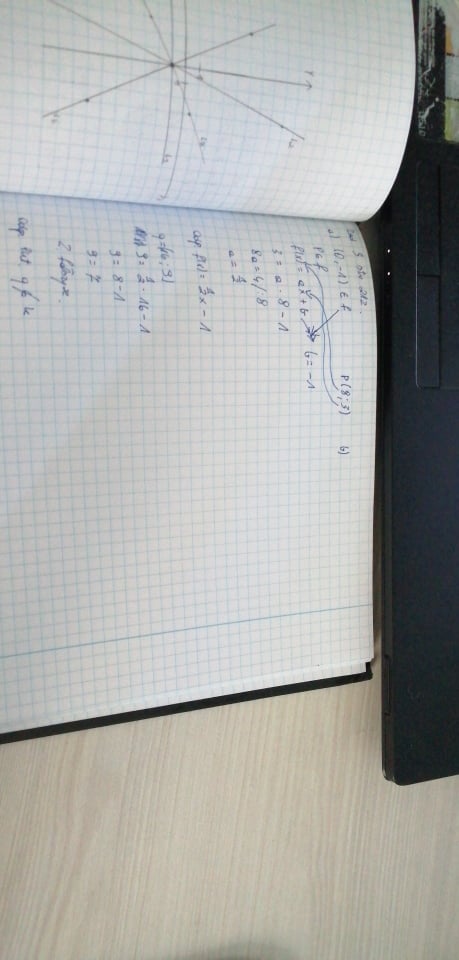 Zad 3 str 212.
a) (0,-1) ∈ f P(8;3) b)
P∈f
f(x) = ax+b b = -1
3 = a · 8 - 1
8a = 4 /:8
a = 1/2
Odp. f(x) = 1/2x - 1
q = (16; 9)
9 = 1/2 · 16 - 1
9 = 8 - 1
9 = 7
Odp. Pkt. q
Y